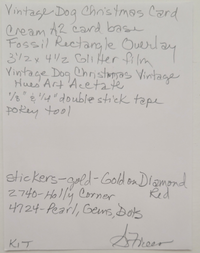 Vintage Dog Christmas Card
Cream A2 card base
Fossil Rectangle Overlay
3 1/2 x 4 1/2 Glitter film
Vintage Dog Christmas Vintage
Hues Art Acetate
1/8" & 1/4" double stick tape
pokey tool
stickers-gold-Gold on Diamond
2740-Holly Corner Red
4724-Pearl, Gems, Dots
KIT